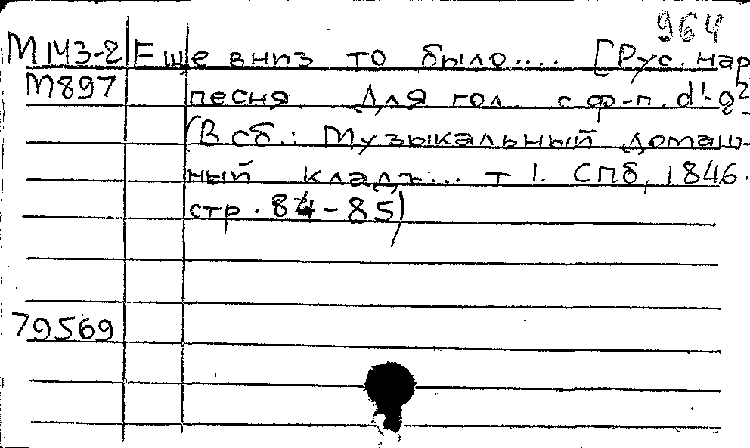 964
М 143-2 Еще вниз то было.... [Рус. нар
М897 песня. Для гол. с ф-п. d¹-g²
(В сб.: Музыкальный домаш-
ный кладъ... т 1. СПб, 1846.
стр. 84-85)
79569